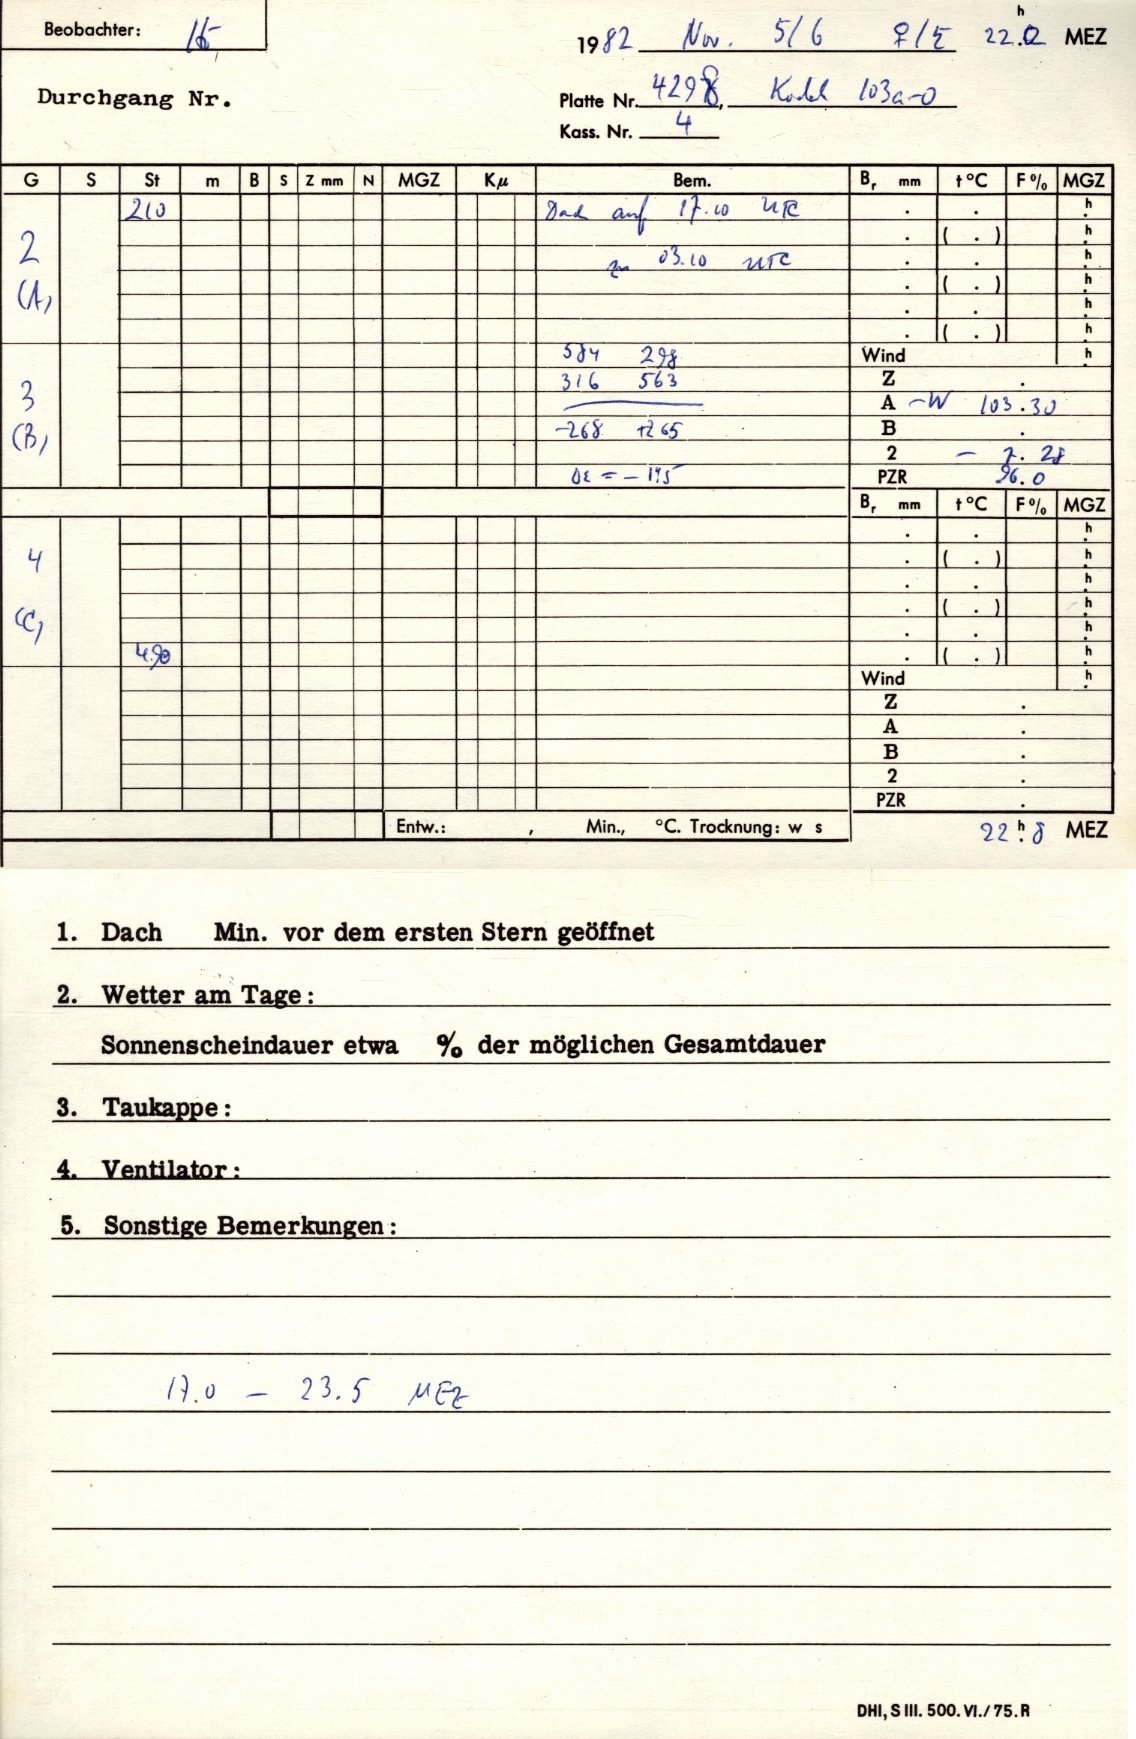 Beobachter:
1982 Nov. 5/6 ♀/♄ 22.h0 MEZ
Durchgang Nr.
Platte Nr. 4298, Kodak 103a-O
Kass. Nr. 4
G S St m B S Z mm N MGZ Kμ Bem. Br mm t °C F % MGZ
210 Dach auf 17.10 UTC . . h
. ( . ) h
2 zu 03.10 UTC . . h
(A) . ( . ) h
. . h
. ( . ) h
584 298 Wind h
3 316 563 Z .
A -W 103.30
(B) -268 +265 B .
2 - 7.28
Δε = - 1.5 PZR 96.0
Br mm t °C F % MGZ
. . h
4 . ( . ) h
. . h
(C) . ( . ) h
. . h
490 . ( . ) h
Wind h
Z .
A .
B .
2 .
PZR .
Entw.: , Min., °C. Trocknung: w s 22.h8 MEZ
1. Dach Min. vor dem ersten Stern geöffnet
2. Wetter am Tage:
Sonnenscheindauer etwa % der möglichen Gesamtdauer
3. Taukappe:
4. Ventilator:
5. Sonstige Bemerkungen:
17.0 - 23.5 MEZ
DHI, S III. 500. VI./75. R